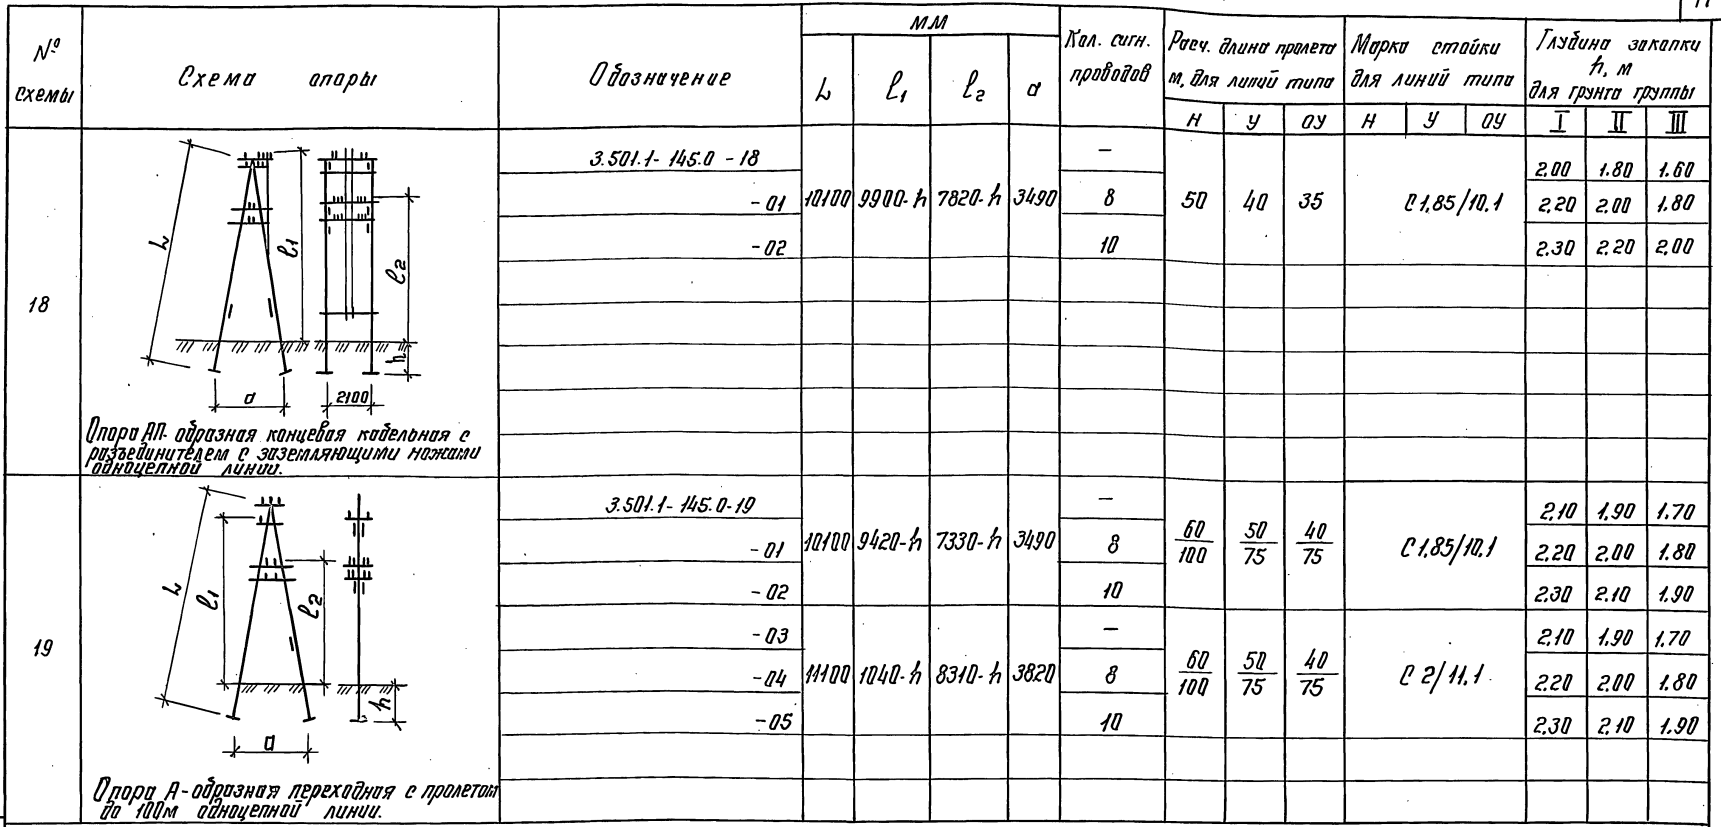 11
№ схемы
Схема опоры
Обозначение
мм
L
l₁
l₂
a
Кол. сигн. проводов
Расч. длина пролета м, для линий типа
Н У ОУ
Марка стойки для линий типа
Н У ОУ
Глубина закапки h, м для грунта группы
I II III
18
L
l₁
l₂
h
a
2100
Опора АП-образная концевая кабельная с
разъединителем с заземляющими ножами
одноцепной линии.
3.501.1-145.0-18 — 2.00 1.80 1.60
-01 10100 9900-h 7820-h 3490 8 50 40 35 С1.85/10.1 2.20 2.00 1.80
-02 10 2.30 2.20 2.00
19
L
l₁
l₂
h
a
Опора А-образная переходная с пролетом
до 100м одноцепной линии.
3.501.1-145.0-19 — 2.10 1.90 1.70
-01 10100 9420-h 7330-h 3490 8 60/100 50/75 40/75 С1.85/10.1 2.20 2.00 1.80
-02 10 2.30 2.10 1.90
-03 — 2.10 1.90 1.70
-04 11100 1040-h 8310-h 3820 8 60/100 50/75 40/75 С2/11.1 2.20 2.00 1.80
-05 10 2.30 2.10 1.90